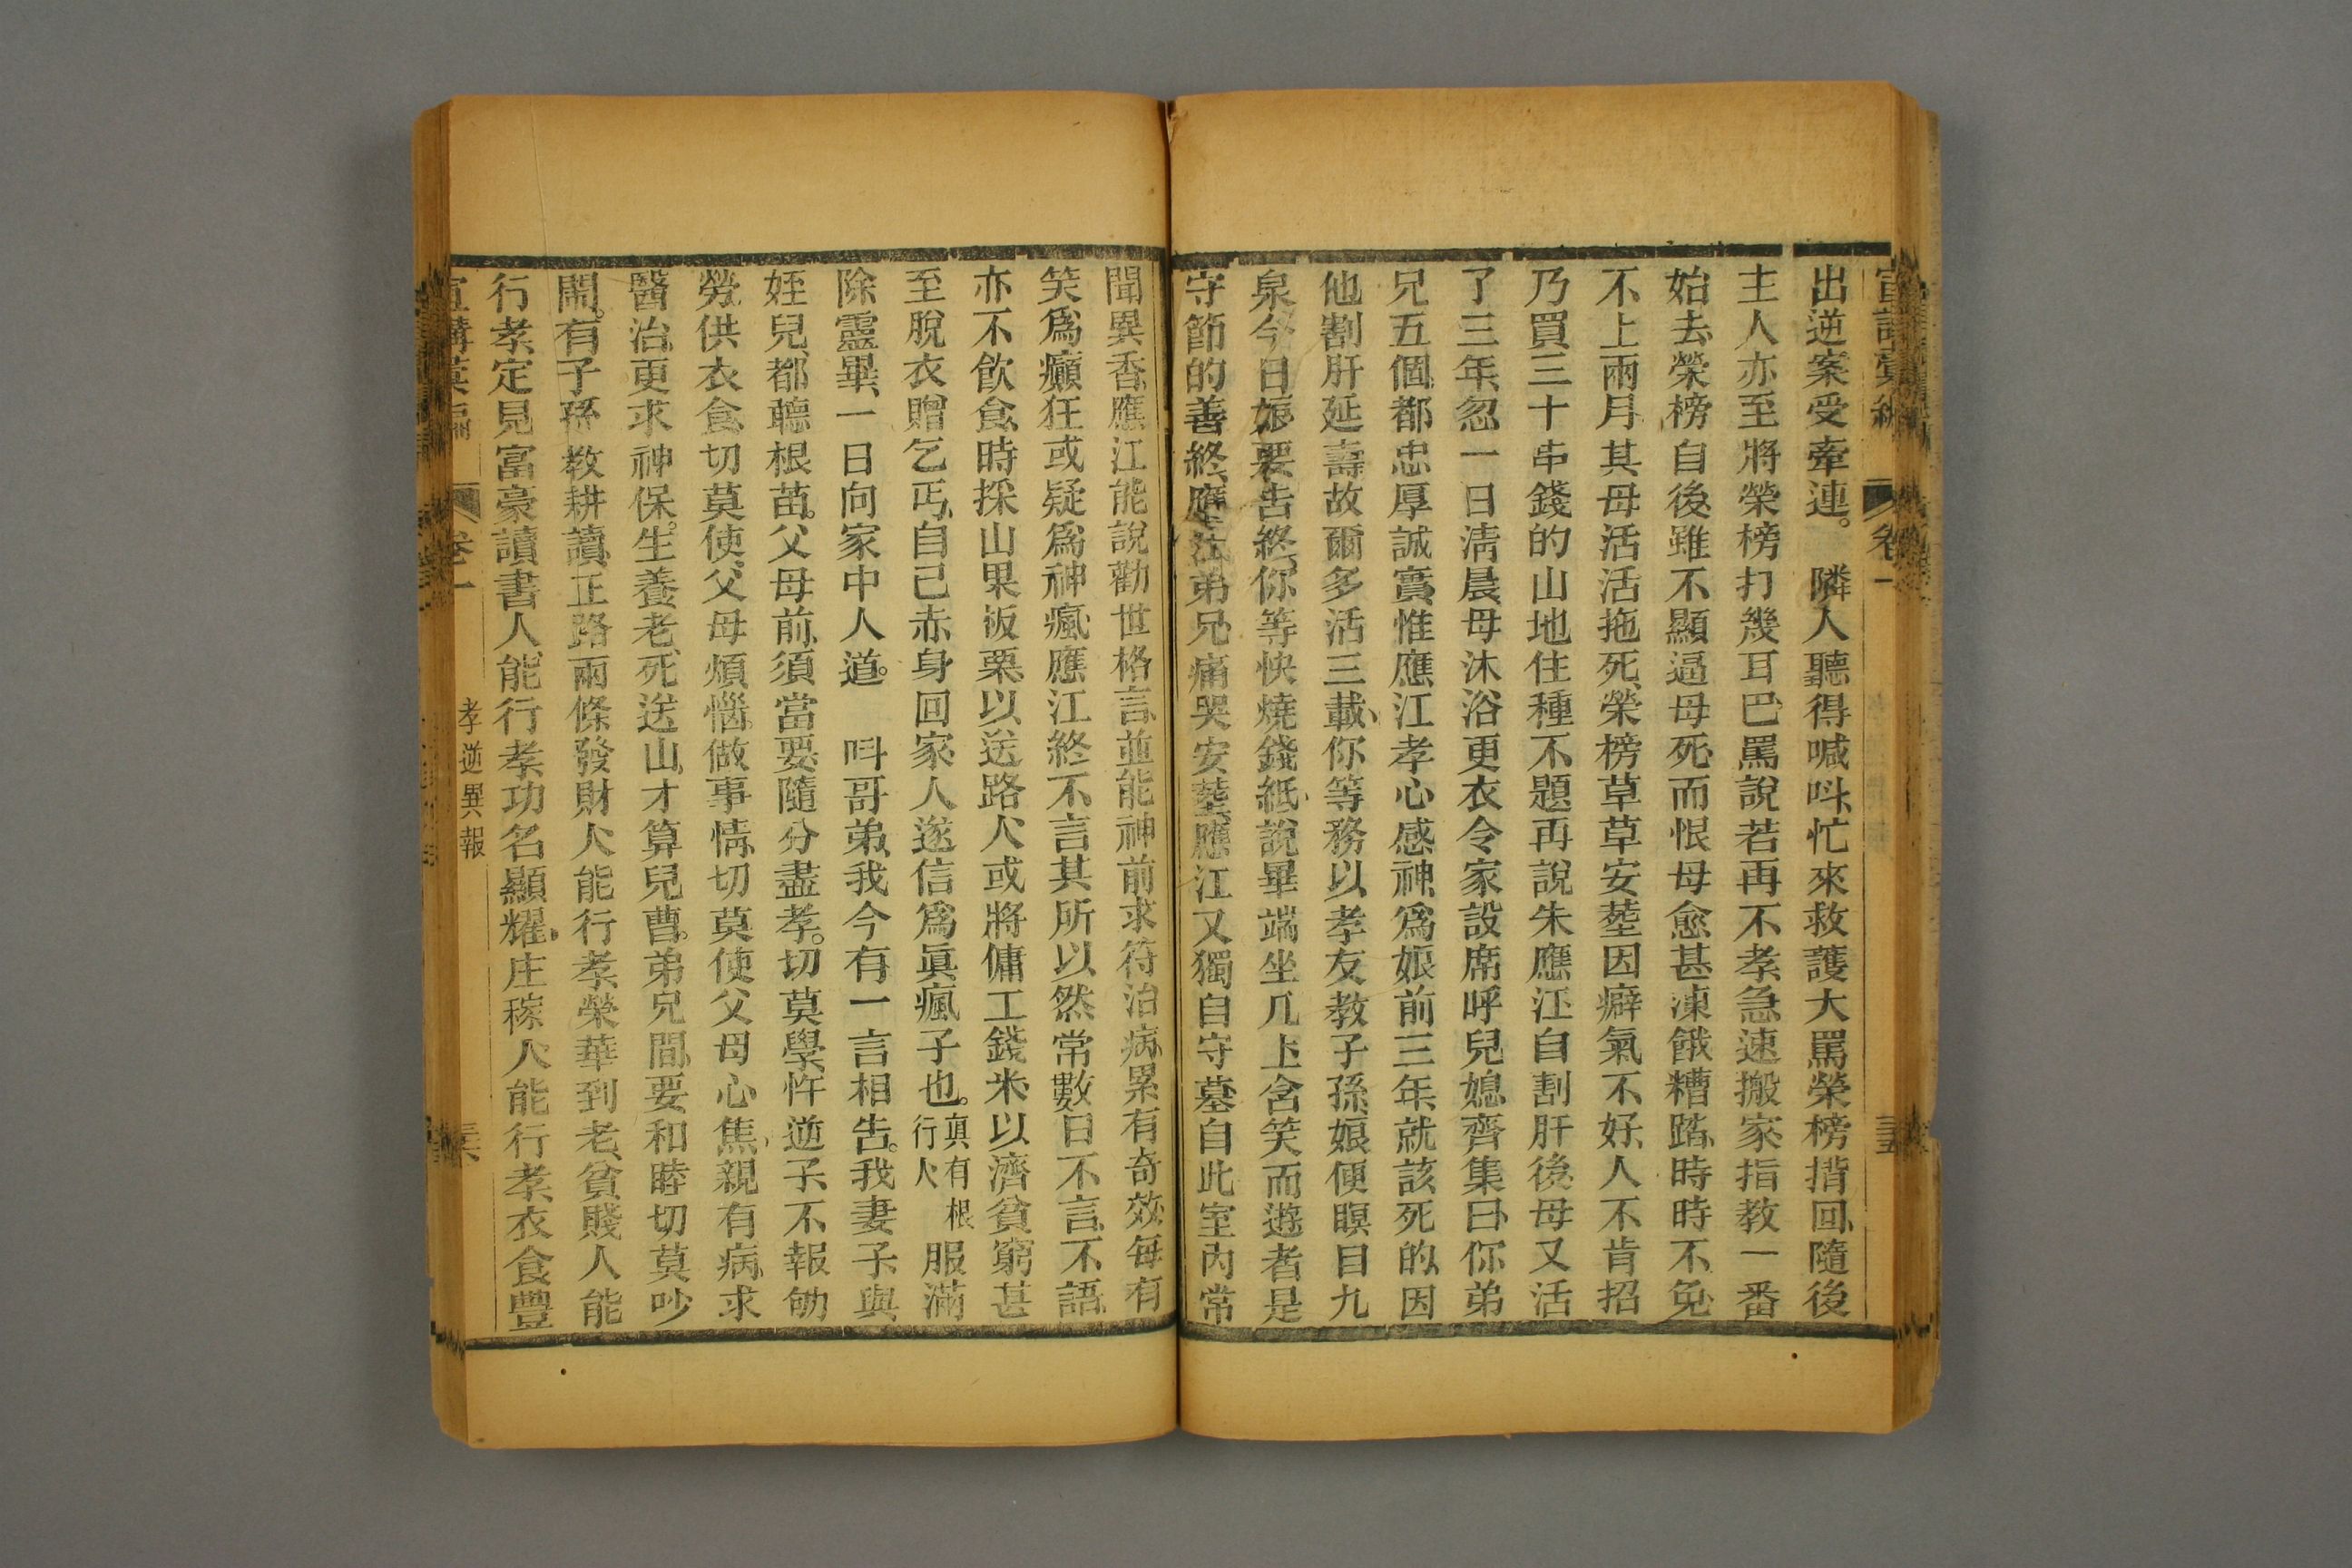 宣講彙編 卷一 三五
出逆案受牽連。 隣人聽得喊呌、忙來救護、大罵榮榜揹回、隨後
主人亦至、將榮榜打幾耳巴、罵說若再不孝、急速搬家、指教一番
始去、榮榜自後、雖不顯逼母死、而恨母愈甚、凍餓糟踏、時時不免、
不上兩月、其母活活拖死、榮榜草草安塟、因癖氣不好、人不肯招
乃買三十串錢的山地住種不題、再說朱應江、自割肝後、母又活
了三年、忽一日淸晨、母沐浴更衣、令家設席、呼兒媳齊集曰、你弟
兄五個、都忠厚誠實、惟應江孝心感神、爲娘前三年、就該死的、因
他割肝延壽、故爾多活三載、你等務以孝友教子孫、娘便瞑目九
泉、今日娘要告終、你等快燒錢紙、說畢、端坐几上、含笑而逝者、是
守節的善終、應江弟兄痛哭安塟、應江又獨自守墓、自此室內常
聞異香、應江能說勸世格言、並能神前求符治病、累有奇效、每有
笑爲癲狂、或疑爲神瘋、應江終不言其所以然、常數日不言不語、
亦不飲食、時採山果板栗、以送路人、或將傭工錢米、以濟貧窮、甚
至脫衣贈乞丐、自己赤身回家、人遂信爲眞瘋子也。眞有根行人 服滿
除靈畢、一日向家中人道。 呌哥弟、我今有一言相告。我妻子與
姪兒、都聽根苗。父母前、須當要隨分盡孝。切莫學忤逆子、不報劬
勞、供衣食、切莫使、父母煩惱。做事情、切莫使、父母心焦、親有病、求
醫治、更求神保。生養老、死送山、才算兒曹。弟兄間、要和睦、切莫吵
鬧。有子孫、教耕讀、正路兩條、發財人、能行孝、榮華到老、貧賤人、能
行孝、定見富豪、讀書人、能行孝、功名顯耀、庄稼人、能行孝、衣食豐
宣講彙編 卷一 孝逆異報 三六